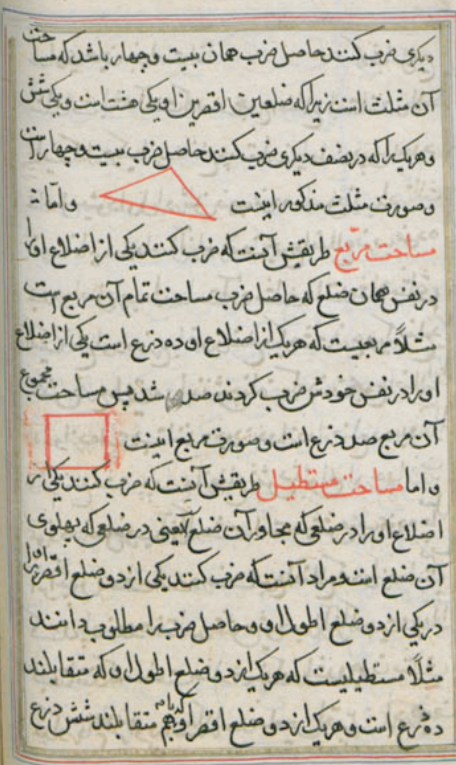 دیکری ضرب کنند حاصل ضرب همان بیست و چهار باشد که مساحت
آن مثلث است زیرا که ضلعین اقصرین او یکی هشت است و یکی شش
و هر یک را که در نصف دیکری ضرب کنند حاصل ضرب بیست و چهار است
و صورت مثلث مذکور اینست و اما
مساحت مربع طریقش آنست که ضرب کنند یکی از اضلاع او را
در نفس همان ضلع که حاصل ضرب مساحت تمام آن مربع است
مثلاً مربعیست که هر یک از اضلاع او ده ذرع است یکی از اضلاع
او را در نفس خودش ضرب کردند صد شد پس مساحت مجموع
آن مربع صد ذرع است و صورت مربع اینست
و اما مساحت مستطیل طریقش آنست که ضرب کنند یکی از
اضلاع او را در ضلعی که مجاور آن ضلع یعنی در ضلعی که پهلوی
آن ضلع است و مراد آنست که ضرب کنند یکی از دو ضلع اقصر او را
در یکی از دو ضلع اطول او و حاصل ضرب را مطلوب دانند
مثلاً مستطیلیست که هر یک از دو ضلع اطول او که متقابلند
ده ذرع است و هر یک از دو ضلع اقصر او که باهم متقابلند شش ذرع